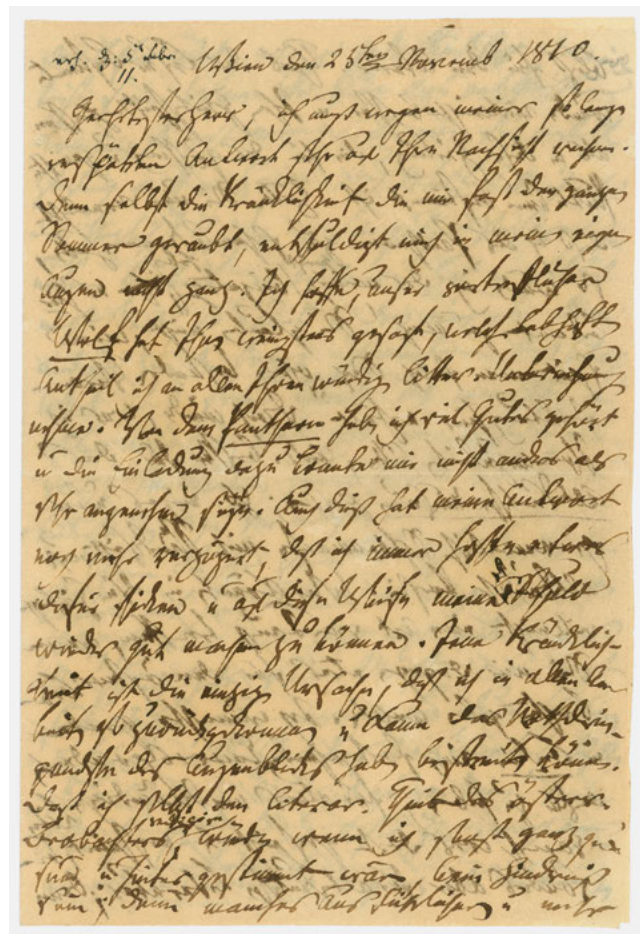 erh. d: 5t Febr.
11.
Wien den 25ten Novemb 1810.
Hochgeehrtester Herr, ich muß wegen meiner so lange
verspäteten Antwort sehr auf Ihre Nachsicht rechnen.
Denn selbst die Kränklichkeit die mir fast den ganzen
Sommer geraubt, entschuldigt mich in meinen eignen
Augen nicht ganz. Ich hoffe, unser vortrefflicher
Wolf hat Ihnen wenigstens gesagt, welch lebhaften
Antheil ich an allen Ihren würdigen litter.
nehme. Von dem Pantheon habe ich viel Gutes gehört
u die Einladung dazu konnte mir nicht anders als
sehr angenehm seyn. Auch dieß hat meine Antwort
noch mehr verzögert, daß ich immer hoffte etwas
dafür schicken u auf diese Weise meine Schuld
wieder gut machen zu können. Jene Kränklich-
keit ist die einzige Ursache, daß ich in allen Ar-
beiten so zurückgekommen u kaum das Nothdrin-
gendste des Augenblickes habe bestreiten können.
Daß ich selbst den literar. Theil des österr.
Beobachters redigire, würde wenn ich sonst ganz ge-
sund u gestimmt wäre, kein Hinderniß
seyn; denn manches ausführlichere u mehr